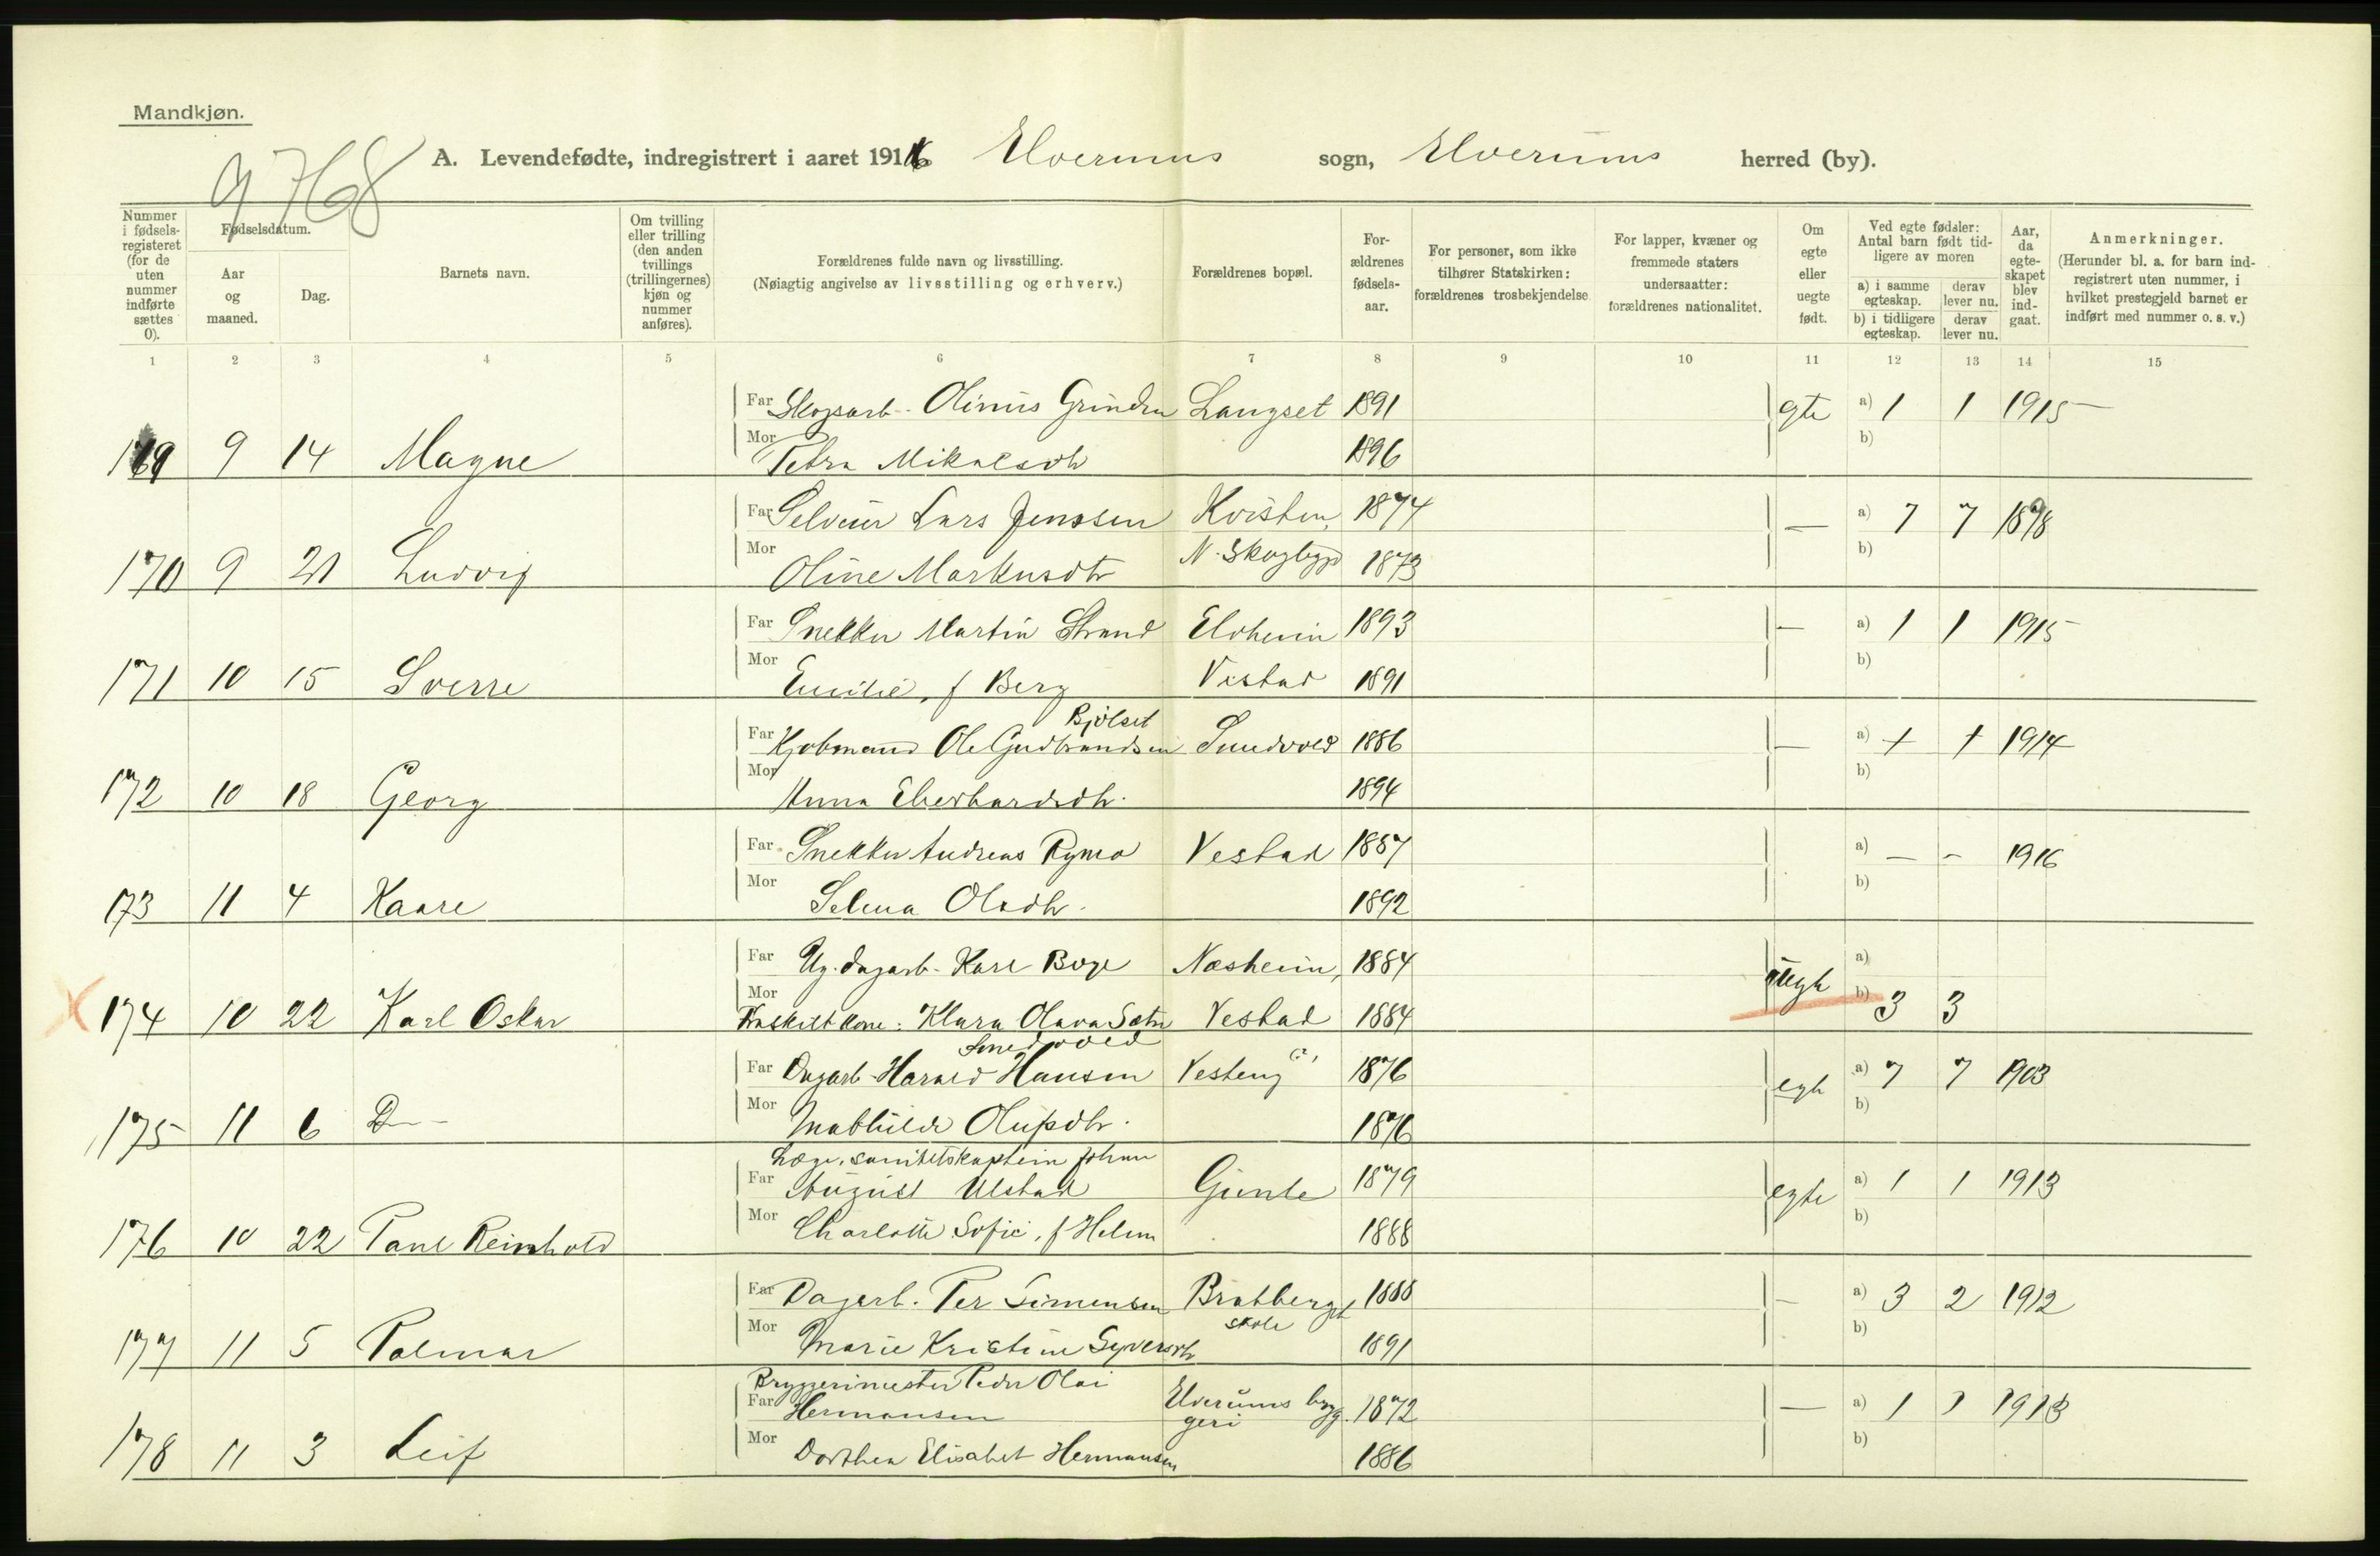 Mandkjøn.
9768
A. Levendefødte, indregistrert i aaret 1916 Elverums sogn, Elverums herred (by).
Nummer i fødsels-registeret (for de uten nummer indførte sættes 0).
Fødselsdatum.
Aar og maaned.
Dag.
Barnets navn.
Om tvilling eller trilling (den anden tvillings (trillingernes) kjøn og nummer anføres).
Forældrenes fulde navn og livsstilling.
(Nøiagtig angivelse av livsstilling og erhverv.)
Forældrenes bopæl.
For-ældrenes fødsels-aar.
For personer, som ikke tilhører Statskirken: forældrenes trosbekjendelse
For lapper, kvæner og fremmede staters undersaatter: forældrenes nationalitet.
Om egte eller uegte født.
Ved egte fødsler: Antal barn født tid-ligere av moren
a) i samme egteskap. derav lever nu.
b) i tidligere egteskap. derav lever nu.
Aar, da egte-skapet blev ind-gaat.
Anmerkninger.
(Herunder bl. a. for barn ind-registrert uten nummer, i hvilket prestegjeld barnet er indført med nummer o. s. v.)
1 2 3 4 5 6 7 8 9 10 11 12 13 14 15
Far Skogsarb. Olinus Grinden Langset 1891 egte a) 1 1 1915
169 9 14 Magne Mor Petra Mikalsdtr 1896 b)
Far Selveier Lars Jenssen Kvisten, 1874 — a) 7 7 1898
170 9 21 Ludvig Mor Oline Markusdtr N. Skogbygd 1873 b)
Far Snekker Martin Strand Elvheim 1893 — a) 1 1 1915
171 10 15 Sverre Mor Emilie, f Berg Vestad 1891 b)
Bjölset
Far Kjøbmand Ole Gudbrandsen Sundvold 1886 — a) 1 1 1914
172 10 18 Georg Mor Anna Eberhardsdtr. 1894 b)
Far Snekker Andreas Rymo Vestad 1887 a) — - 1916
173 11 4 Kaare Mor Selma Olsdtr. 1892 b)
Far Ug. dagarb. Karl Boye Næsheim, 1884 uegte a)
174 10 22 Karl Oskar Mor Fraskilt kone: Klara Olava Sætre Vestad 1884 b) 3 3
Smedvold
Far Dagarb. Harald Hansen Vesteng 1876 egte a) 7 7 1903
175 11 6 D— Mor Mathilde Olufsdtr. 1876 b)
Læge, sanitetskaptein Johan
Far August Ulstad Grinde 1879 egte a) 1 1 1913
176 10 22 Paul Reinhold Mor Charlotte Sofie, f Holm 1888 b)
Far Dagarb. Per Simensen Bratberget 1888 — a) 3 2 1912
skole
177 11 5 Palmar Mor Marie Kristine Syversdtr 1891 b)
Bryggerimester Peder Olai
Far Hermansen Elverums bryg-geri 1872 — a) 1 1 1913
178 11 3 Leif Mor Dorthea Elisabet Hermansen 1886 b)